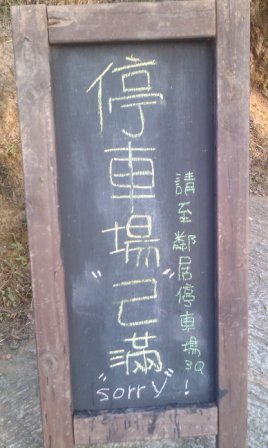 停車場"已滿"
請至鄰居停車場3Q
"sorry"!